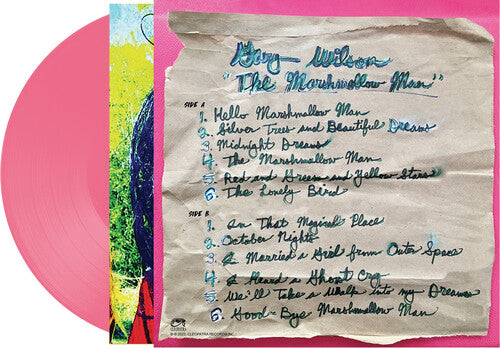 Gary Wilson
"The Marshmallow Man"
SIDE A
1. Hello Marshmallow Man
2. Silver Trees and Beautiful Dreams
3. Midnight Dreams
4. The Marshmallow Man
5. Red and Green and Yellow Stars
6. The Lonely Bird
SIDE B
1. In That Magical Place
2. October Nights
3. I Married a Girl from Outer Space
4. I Heard a Ghost Cry
5. We'll Take a Walk into my Dreams
6. Good-Bye Marshmallow Man
CLEOPATRA
CLEOPATRA RECORDS INC.